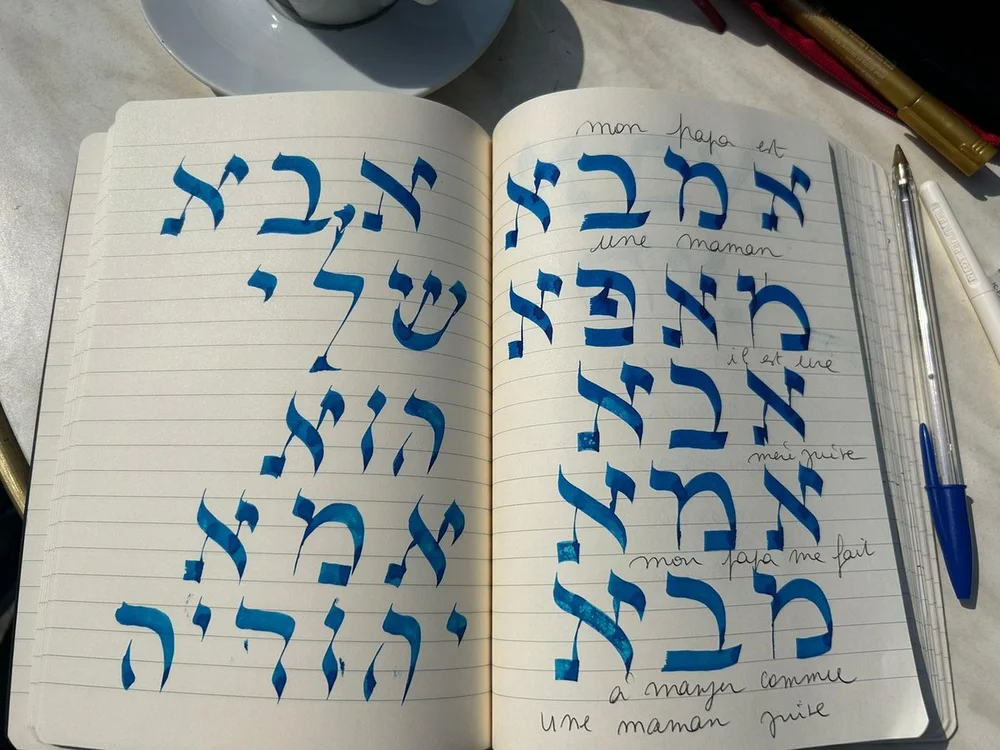 אבא
שלי
הוא
אמא
יהודיה
mon papa est
אמבא
une maman
מאפא
il est une
אבא
mère juive
אמא
mon papa me fait
מבא
à manger comme
une maman juive